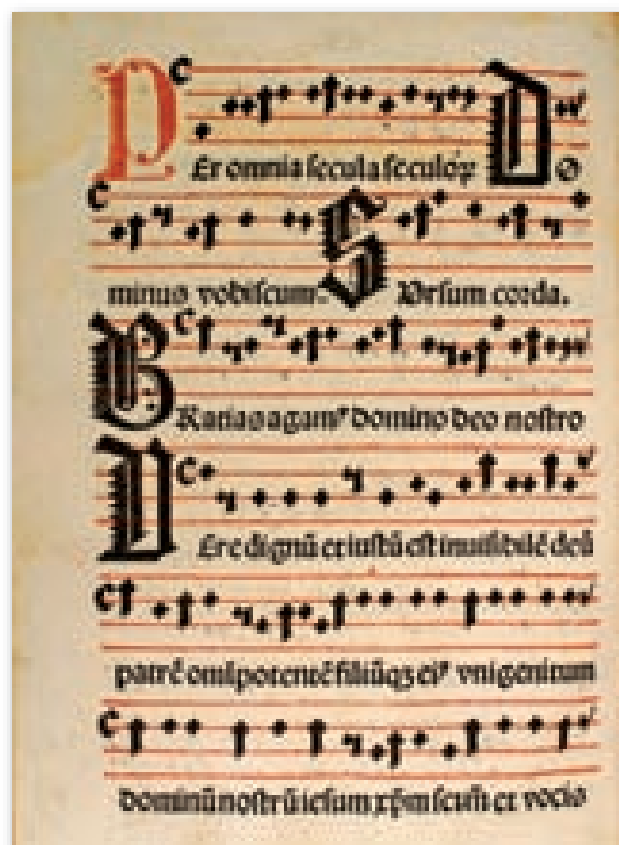 PEr omnia secula seculoꝝ Do
minus vobiscum. SUrsum corda.
GRatias agamꝰ domino deo nostro
VEre dignū et iustū est inuisibilē deū
patrē omĩpotentē filiūqꝫ eiꝰ vnigenitum
dominū nostrū iesum xp̄m et vocis